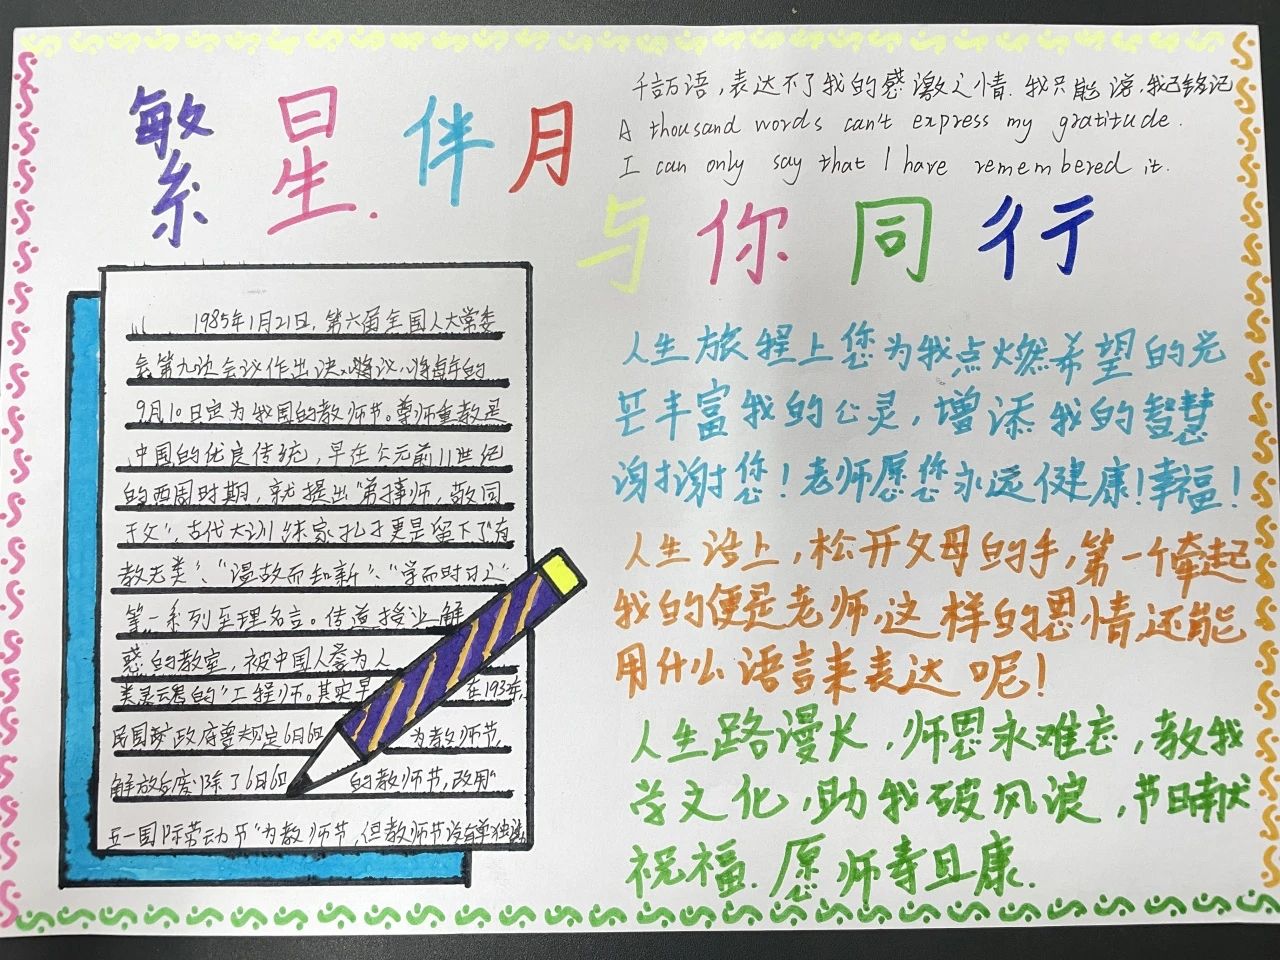 繁星伴月
千言万语，表达不了我的感激之情.我只能说，我已铭记
A thousand words can't express my gratitude.
I can only say that I have remembered it.
与你同行
1985年1月21日，第六届全国人大常委
会第九次会议作出决议，将每年的
9月10日定为我国的教师节。尊师重教是
中国的优良传统，早在公元前11世纪
的西周时期，就提出"弟事师，敬同
于父"，古代大训练家孔子更是留下了"有
教无类"、"温故而知新"、"学而时习之"
等一系列至理名言。传道授业解
惑的教室，被中国人誉为人
类灵魂的"工程师。其实早 在193年，
民国政府曾规定6月6日 为教师节，
解放后废除了6月6日 的教师节，改用"
五一国际劳动节"为教师节，但教师节没有单独选
人生旅程上您为我点燃希望的光
芒丰富我的心灵，增添我的智慧
谢谢您！老师愿您永远健康！幸福！
人生路上，松开父母的手，第一个牵起
我的便是老师，这样的恩情还能
用什么语言来表达呢！
人生路漫长，师恩永难忘，教我
学文化，助我破风浪，节日献
祝福.愿师寿且康.